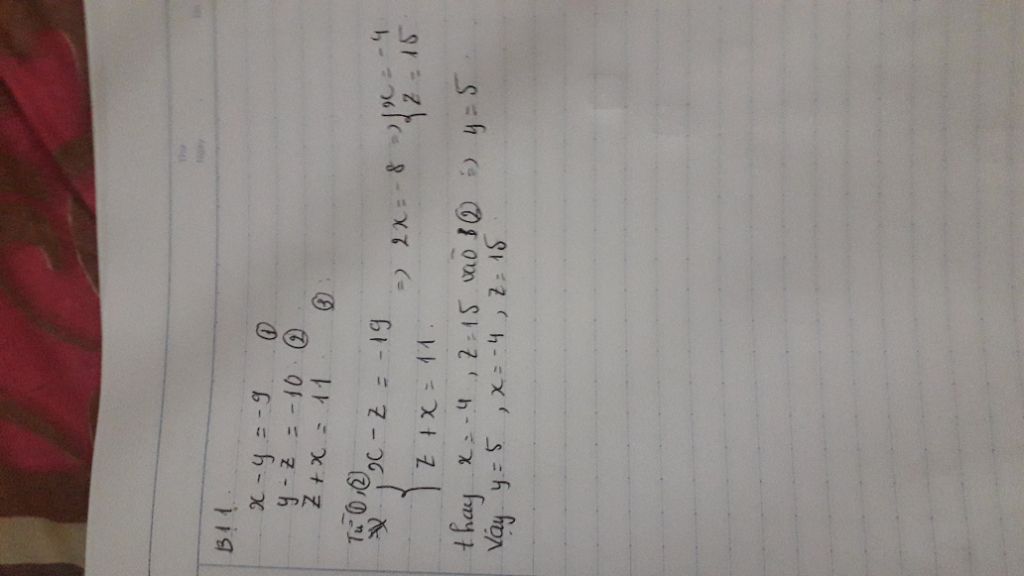 B11.
x - y = -9 ①
y - z = -10 ②
z + x = 11 ③
Từ ①, ②
{ x - z = -19
z + x = 11.
=> 2x = -8 => { x = -4
z = 15
thay x = -4, z = 15 vào ② => y = 5.
Vậy y = 5, x = -4, z = 15.